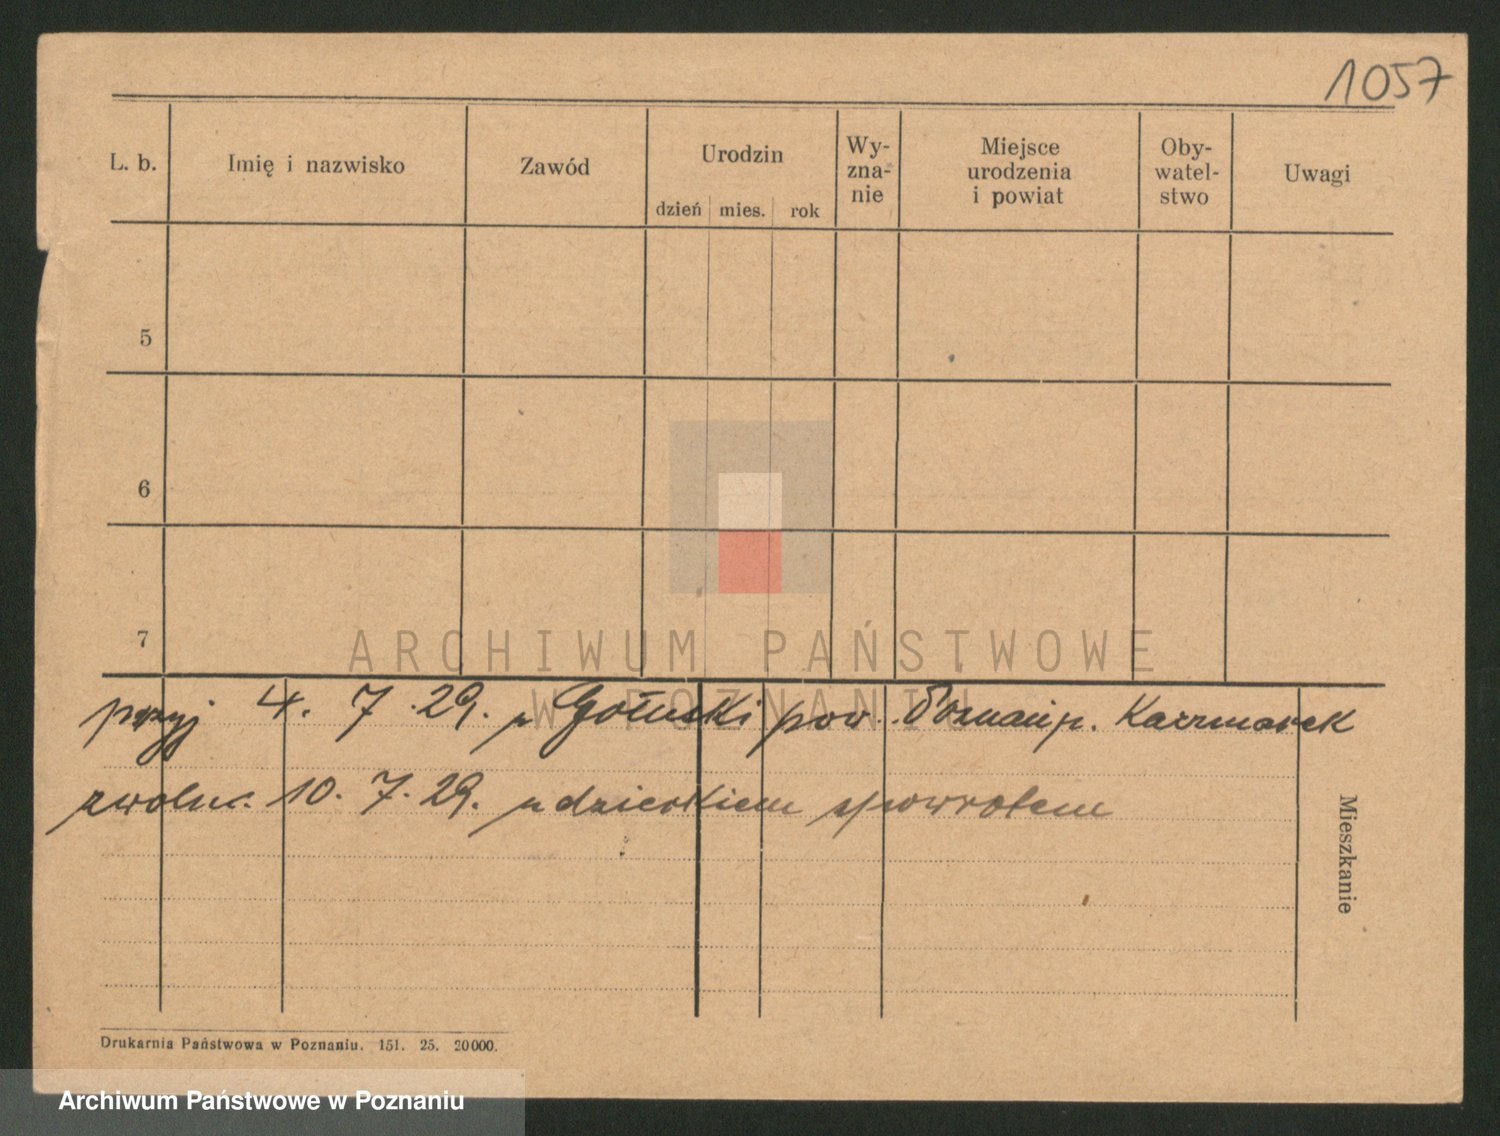 1057
L. b.
Imię i nazwisko
Zawód
Urodzin
dzień mies. rok
Wy-
zna-
nie
Miejsce
urodzenia
i powiat
Oby-
watel-
stwo
Uwagi
5
6
7
ARCHIWUM PAŃSTWOWE
W POZNANIU
przyj 4. 7. 29. z Gołuski pow. Poznań p. Kaczmarek
zwoln. 10. 7. 29. z dzieckiem spowrotem
Mieszkanie
Drukarnia Państwowa w Poznaniu. 151. 25. 20000.
Archiwum Państwowe w Poznaniu